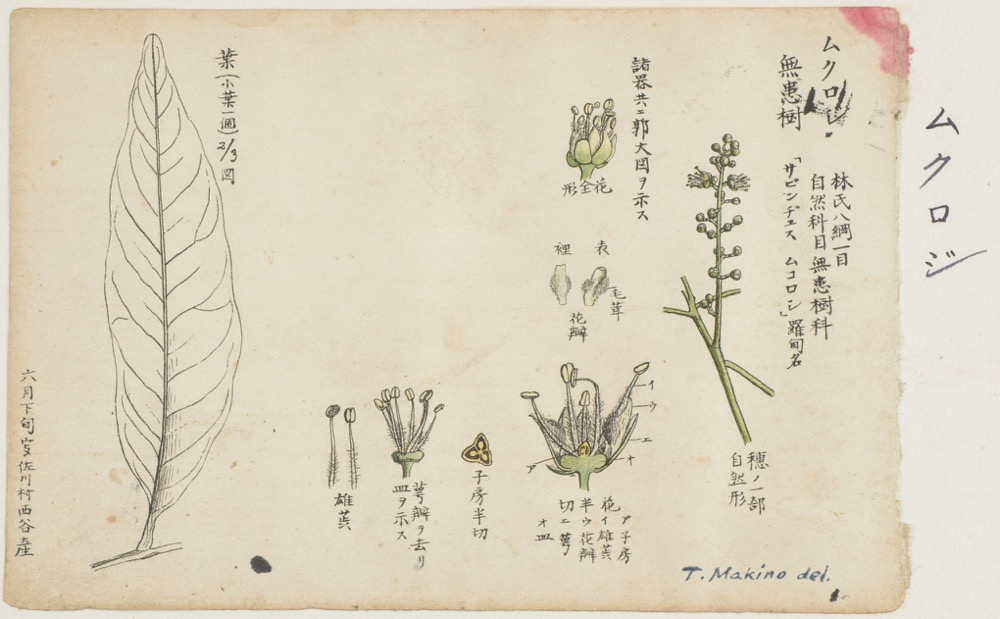 ムクロジ
ムクロジ
無患樹
林氏八綱一目
自然科目無患樹科
「サピンヂュス ムコロシ」羅甸名
穂ノ一部
自然形
諸器共ニ郭大図ヲ示ス
花全形
表
裡
毛茸
花瓣
イ
ウ
エ
オ
ア
ア子房
花イ雄蕋
半ウ花瓣
切エ萼
オ皿
子房半切
萼瓣ヲ去リ
皿ヲ示ス
雄蕋
葉(小葉一個)2/3図
佐川村西谷産
六月下旬
T. Makino del.